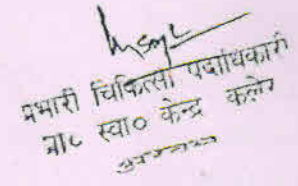 प्रभारी चिकित्सा पदाधिकारी
प्रा० स्वा० केन्द्र कलेर